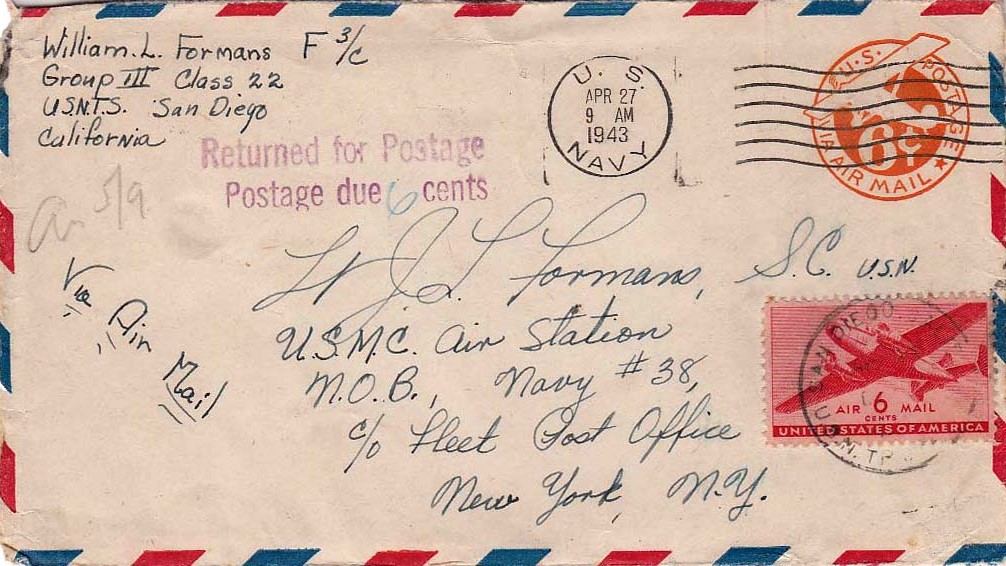 William. L. Formans F 3/c
Group III Class 22
U.S.N.T.S. San Diego
California
Returned for Postage
Postage due 6 cents
5/9
U. S.
APR 27
9 AM
1943
NAVY
U.S. POSTAGE
6¢
VIA AIR MAIL
Via Air Mail
Lt J L Formans, S.C. U.S.N.
U.S.M.C. Air Station
N.O.B., Navy #38,
c/o Fleet Post Office
New York, N.Y.
SAN DIEGO
AIR 6 MAIL
CENTS
UNITED STATES OF AMERICA